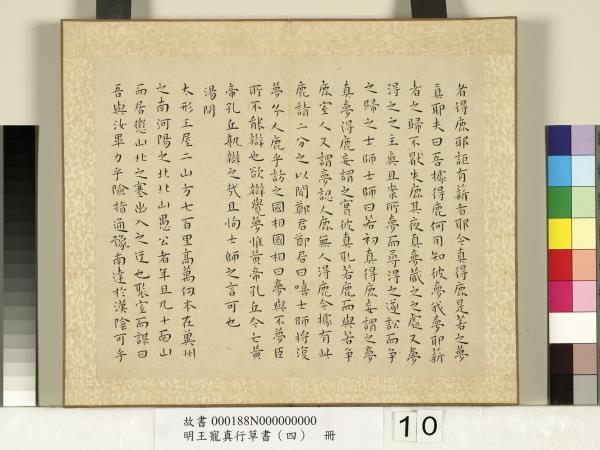 者得鹿耶詎有薪者耶今真得鹿是若之夢
真耶夫曰吾據得鹿何用知彼夢我夢耶薪
者之歸不猒失鹿其夜真夢藏之之處又夢
得之之主爽旦案所夢而尋得之遂訟而爭
之歸之士師士師曰若初真得鹿妄謂之夢
真夢得鹿妄謂之實彼真取若鹿而與若爭
鹿室人又謂夢認人鹿無人得鹿今據有此
鹿請二分之以聞鄭君鄭君曰嘻士師將復
夢分人鹿乎訪之國相國相曰夢與不夢臣
所不能辯也欲辯覺夢惟黃帝孔丘今亡黃
帝孔丘孰辯之哉且恂士師之言可也
湯問
太形王屋二山方七百里高萬仞本在冀州
之南河陽之北北山愚公者年且九十面山
而居懲山北之塞出入之迂也聚室而謀曰
吾與汝畢力平險指通豫南達於漢陰可乎
故書 000188N000000000
明王寵真行草書(四) 冊
10